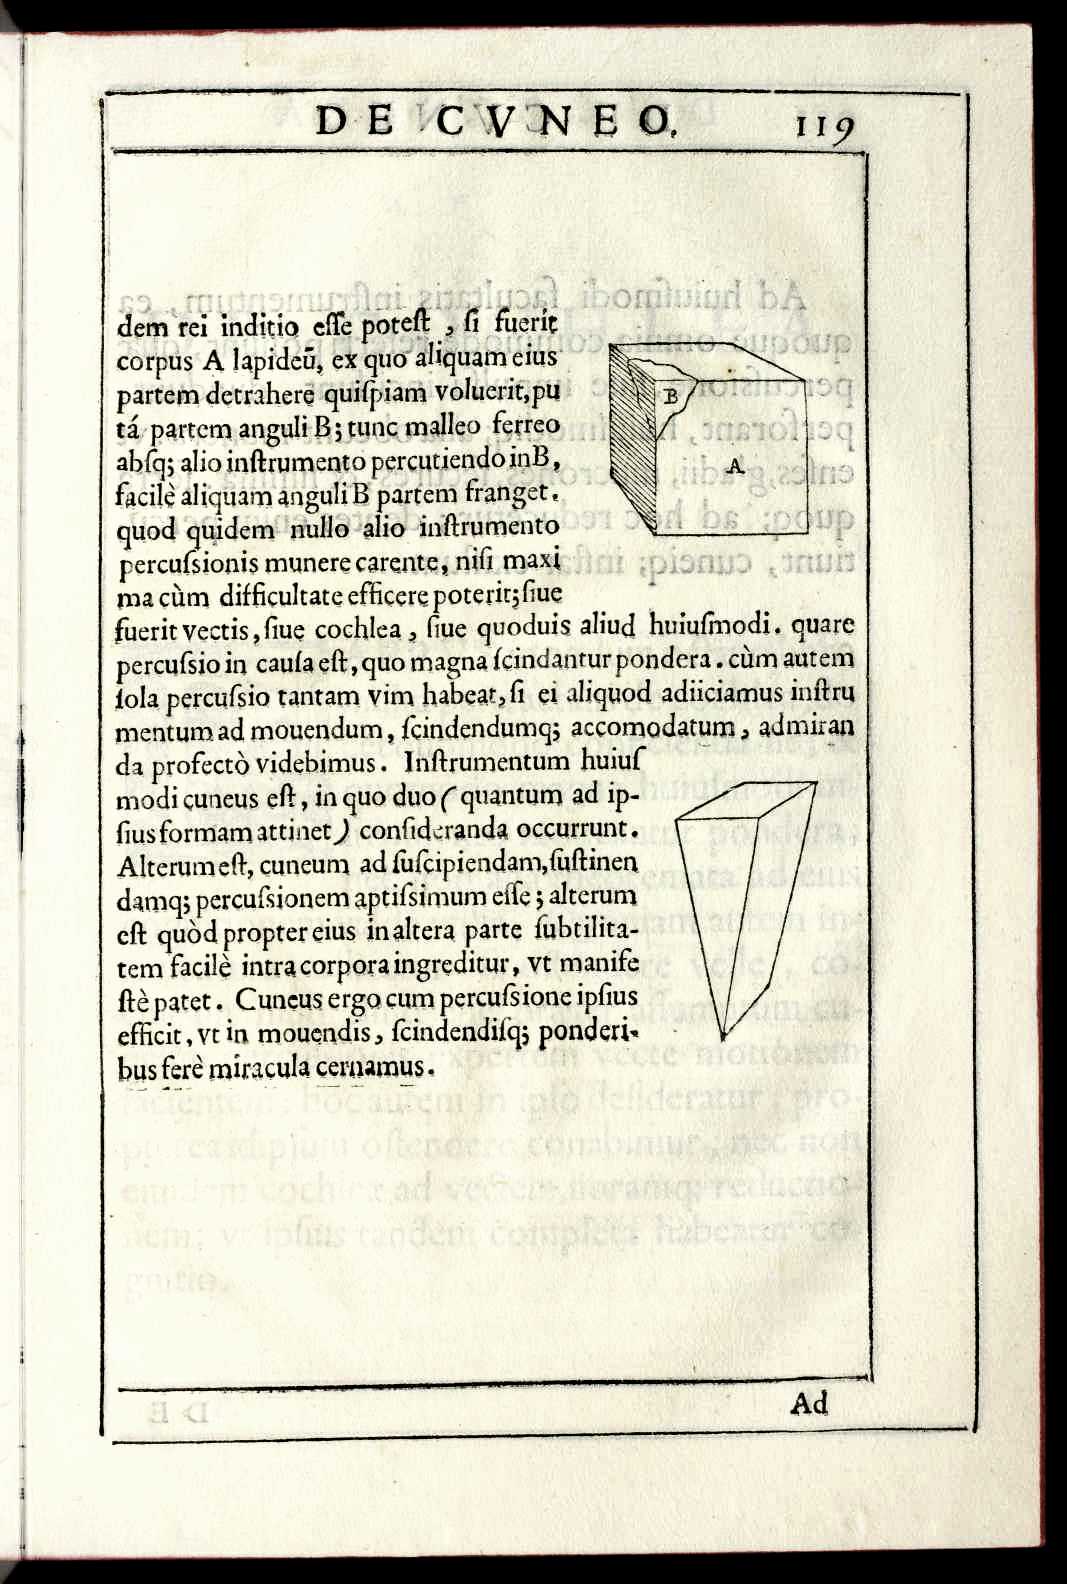 DE CVNEO. 119
dem rei inditio eſſe poteſt , ſi fuerit
corpus A lapideũ, ex quo aliquam eius
partem detrahere quiſpiam voluerit, pu
tá partem anguli B; tunc malleo ferreo
abſq; alio inſtrumento percutiendo in B,
facilè aliquam anguli B partem franget.
quod quidem nullo alio inſtrumento
percuſsionis munere carente, niſi maxi
ma cùm difficultate efficere poterit; ſiue
fuerit vectis, ſiue cochlea, ſiue quoduis aliud huiuſmodi. quare
percuſsio in cauſa eſt, quo magna ſcindantur pondera. cùm autem
ſola percuſsio tantam vim habeat, ſi ei aliquod adiiciamus inſtru
mentum ad mouendum, ſcindendumq; accomodatum, admiran
da profectò videbimus. Inſtrumentum huiuſ
modi cuneus eſt, in quo duo (quantum ad ip-
ſius formam attinet) conſideranda occurrunt.
Alterum eſt, cuneum ad ſuſcipiendam, ſuſtinen
damq; percuſsionem aptiſsimum eſſe; alterum
eſt quòd propter eius in altera parte ſubtilita-
tem facilè intra corpora ingreditur, vt manife
ſtè patet. Cuneus ergo cum percuſsione ipſius
efficit, vt in mouendis, ſcindendiſq; ponderi-
bus ferè miracula cernamus.
B
A
Ad